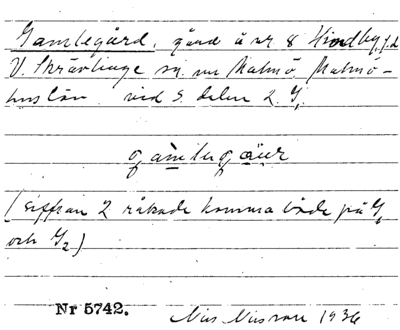 Gamlegård, gård å nr 8 Hindby, f.d.
V. Skrävlinge sn, nu Malmö, Malmö-
hus län, vid S. delen 2. G,
gamlegåur
(Siffran 2 råkade komma både på G,
och G2)
Nr 5742. Nils Nilsson 1936